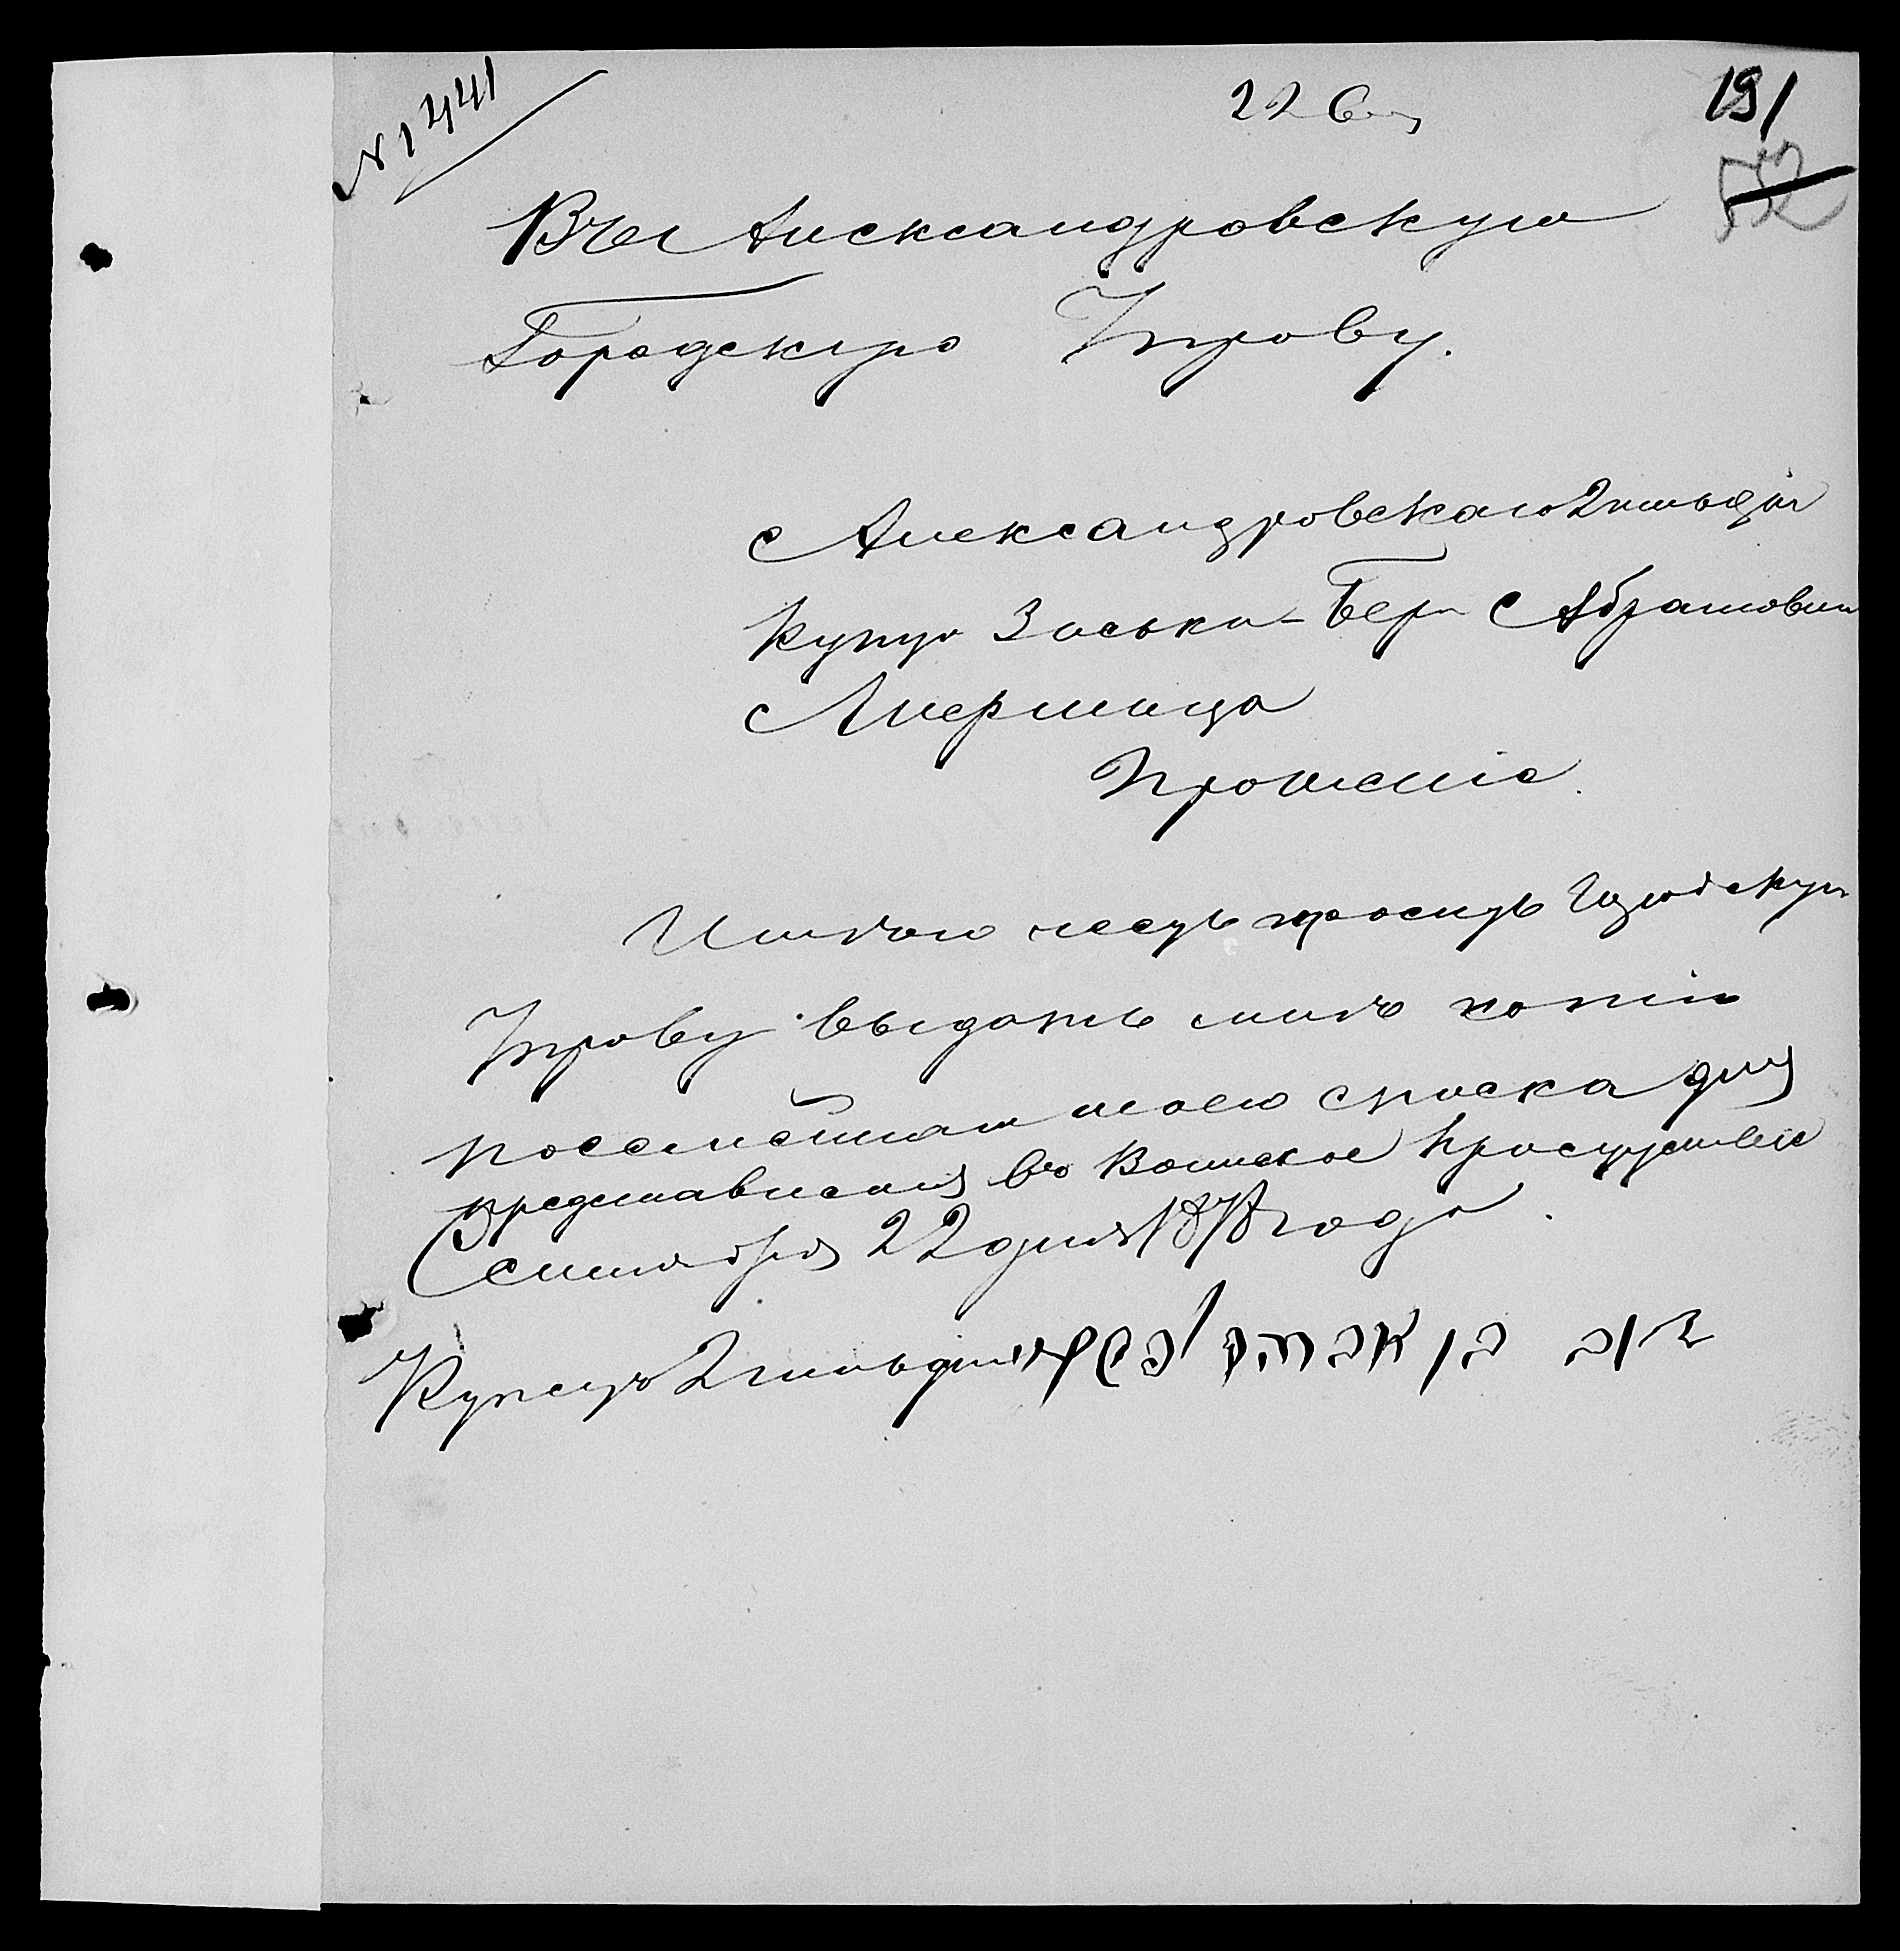 N 1441
22 Сен
191
552
Въ Александровскую
Городскую Управу.
Александровскаго 2 гильдіи
Купца Зуська-Бер Абрамовича
Прошеніе.
Имѣю честь просить Городскую
Управу выдать мнѣ копію
посемейнаго моего списка для
представленія въ Воинское Присутствіе
Сентября 22 дня 1878 года.
Купецъ 2 гильдіи בן אברהם